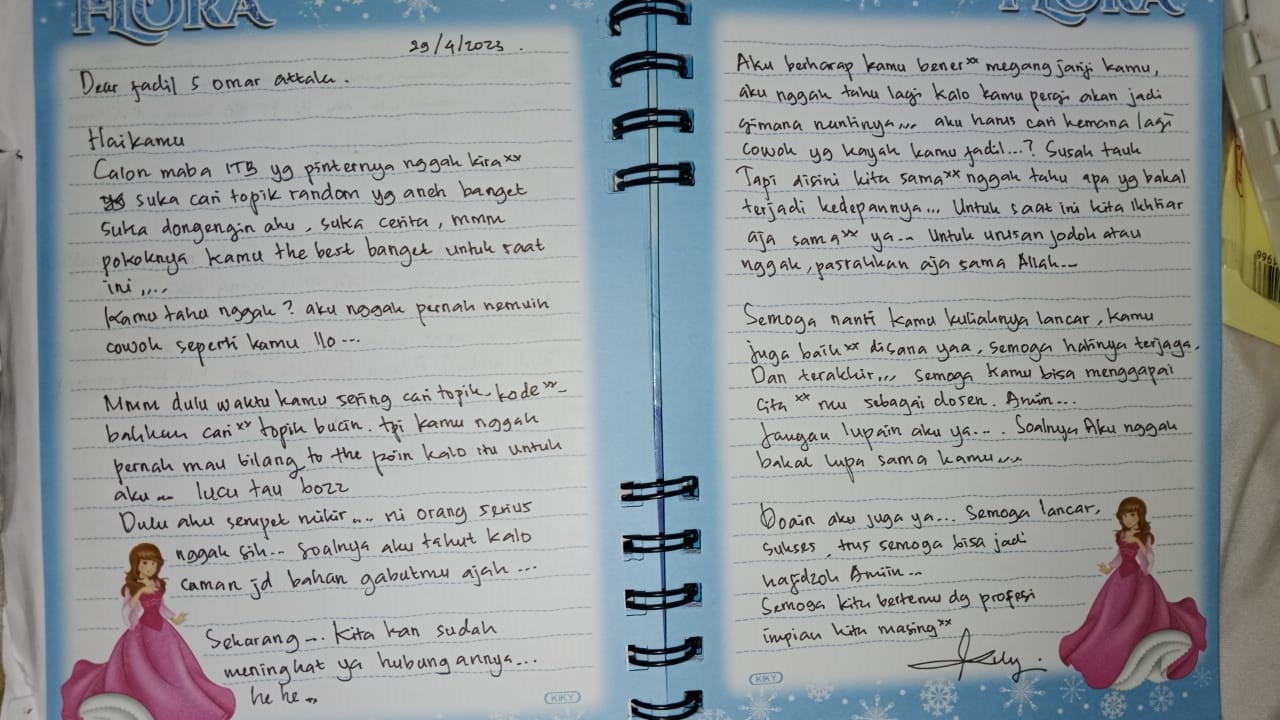 FLORA
29/4/2023.
Dear fadil s omar attaku.
Hai kamu
Calon maba ITB yg pinternya nggak kira"
suka cari topik random yg aneh banget
suka dongengin aku, suka cerita, mmm
pokoknya kamu the best banget untuk saat
ini ,...
Kamu tahu nggak? aku nggak pernah nemuin
cowok seperti kamu llo...
Mmm dulu waktu kamu sering cari topik kode"-
bahkan cari" topik bucin. tpi kamu nggak
pernah mau bilang to the poin kalo itu untuk
aku... lucu tau bozz
Dulu aku sempet mikir... ni orang serius
nggak sih... Soalnya aku takut kalo
caman jd bahan gabutmu ajah...
Sekarang... kita kan sudah
meningkat ya hubungannya...
he he...
KIKY
FLORA
Aku berharap kamu bener" megang janji kamu,
aku nggak tahu lagi kalo kamu pergi akan jadi
gimana nantinya... aku harus cari kemana lagi
cowok yg kayak kamu fadil...? Susah tauk
Tapi disini kita sama" nggak tahu apa yg bakal
terjadi kedepannya... Untuk saat ini kita ikhtiar
aja sama" ya... Untuk urusan jodoh atau
nggak, pasrahkan aja sama Allah...
Semoga nanti kamu kuliahnya lancar, kamu
juga baik" disana yaa, semoga hatinya terjaga.
Dan terakhir,,, semoga kamu bisa menggapai
Cita" mu sebagai dosen. Amiin...
Jangan lupain aku ya... Soalnya Aku nggak
bakal lupa sama kamu...
Doain aku juga ya... Semoga lancar,
sukses, trus semoga bisa jadi
hafidzoh Amiin...
Semoga kita bertemu dg profesi
impian kita masing"
KIKY
1966